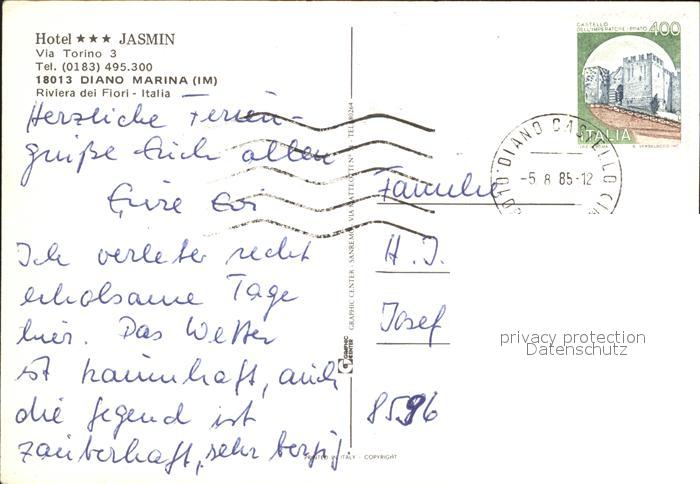 Hotel ★★★ JASMIN
Via Torino 3
Tel. (0183) 495.300
18013 DIANO MARINA (IM)
Riviera dei Fiori - Italia
Herzliche Ferien-
grüße Euch allen
Eure Evi
Ich verlebe recht
erholsame Tage
hier. Das Wetter
ist traumhaft, auch
die Gegend ist
zauberhaft, sehr bergig.
GRAPHIC CENTER - SANREMO - VIA MATTEOTTI
GRAPHIC CENTER
PRINTED IN ITALY - COPYRIGHT
CASTELLO
DELL'IMPERATORE - PRATO
400
ITALIA
DIANO CASTELLO
-5.8.85-12
Familie
H. J.
Josef
8596
privacy protection
Datenschutz